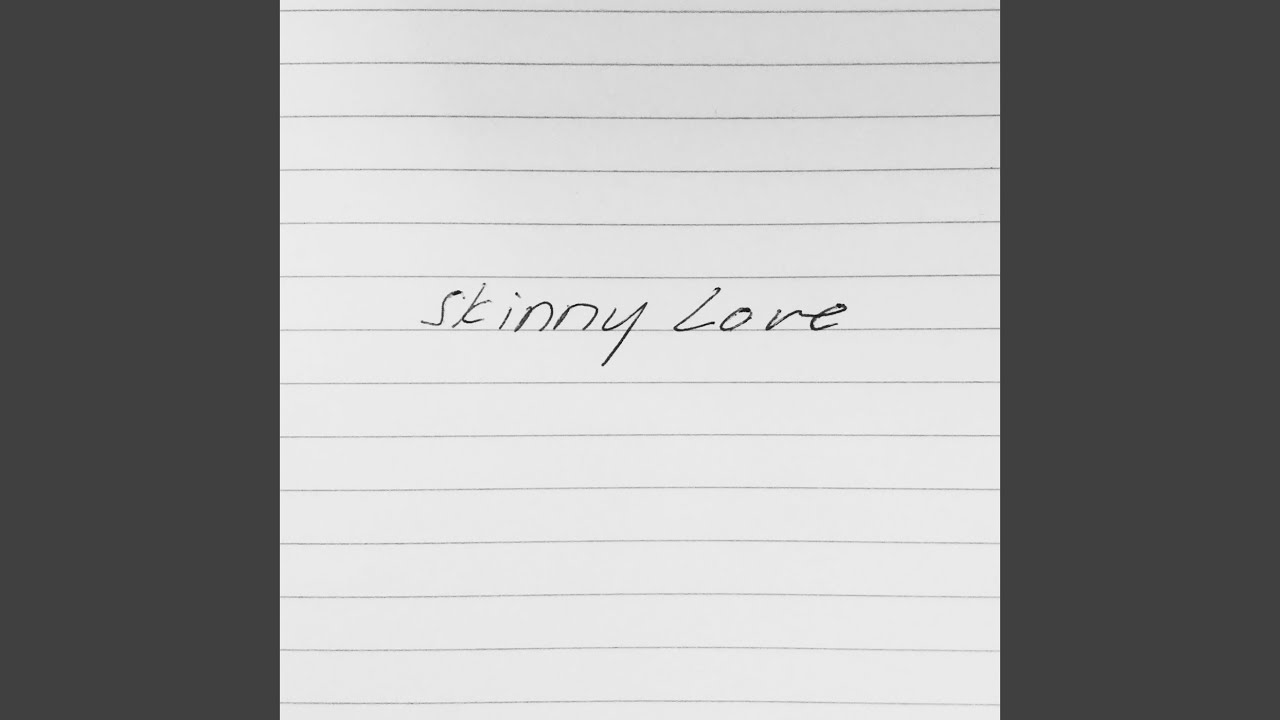 Skinny Love